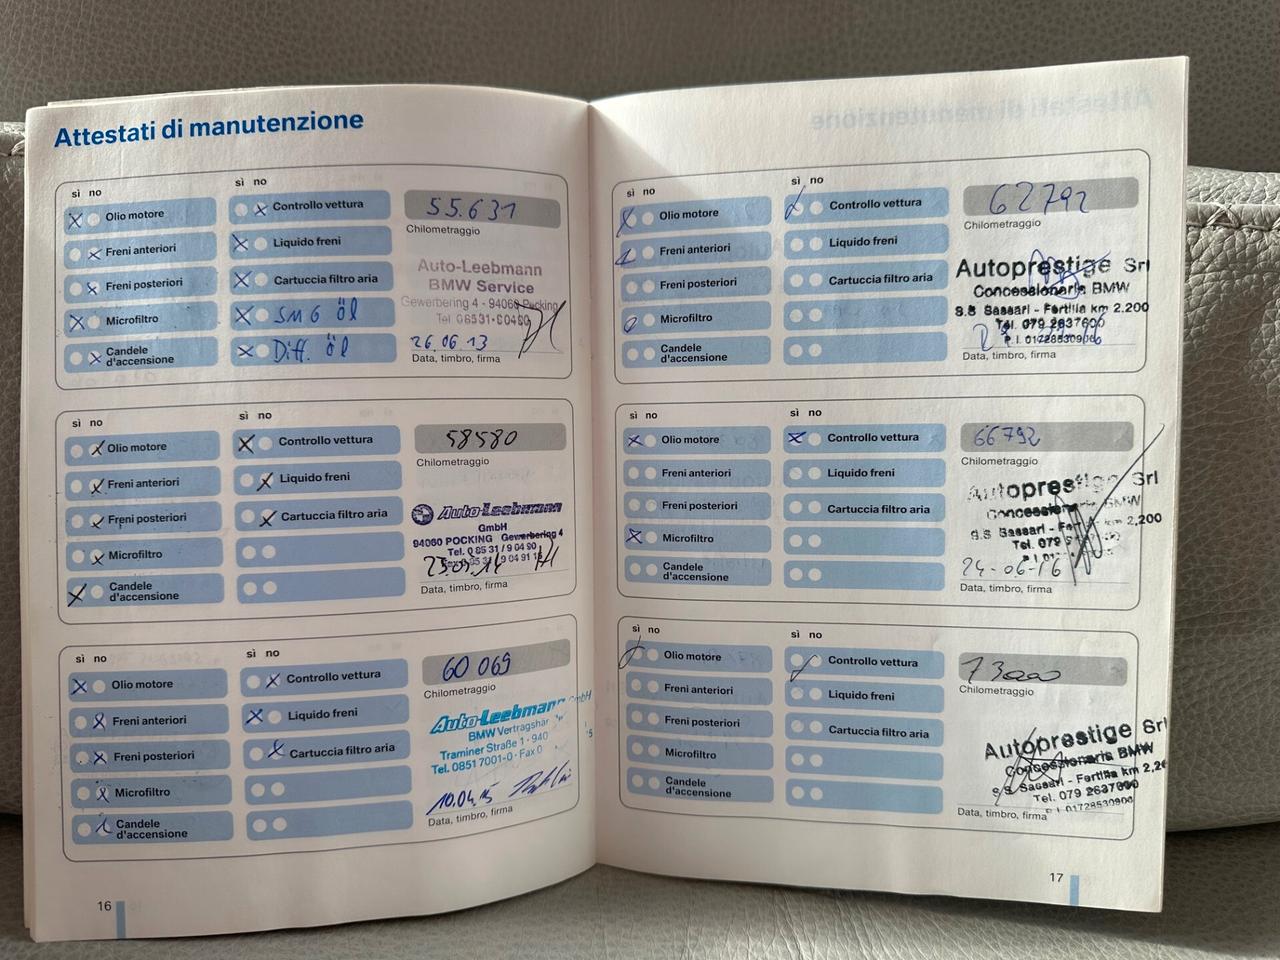 Attestati di manutenzione
sì no
sì no
Olio motore
Controllo vettura
55.631
Chilometraggio
Freni anteriori
Liquido freni
Freni posteriori
Cartuccia filtro aria
Auto-Leebmann
BMW Service
Gewerbering 4 - 94060 Pocking
Microfiltro
SMG öl
Candele
d'accensione
Diff. öl
26.06.13
Data, timbro, firma
sì no
sì no
Olio motore
Controllo vettura
58580
Chilometraggio
Freni anteriori
Liquido freni
Freni posteriori
Cartuccia filtro aria
Auto-Leebmann
GmbH
94060 POCKING Gewerbering 4
Tel. 0 85 31 / 9 04 90
Microfiltro
Candele
d'accensione
Data, timbro, firma
sì no
sì no
Olio motore
Controllo vettura
60 069
Chilometraggio
Freni anteriori
Liquido freni
Freni posteriori
Cartuccia filtro aria
Auto-Leebmann GmbH
BMW Vertragshär
Traminer Straße 1 - 940
Tel. 0851 7001-0 · Fax 0
Microfiltro
Candele
d'accensione
10.04.15
Data, timbro, firma
16
sì no
sì no
Olio motore
Controllo vettura
62792
Chilometraggio
Freni anteriori
Liquido freni
Freni posteriori
Cartuccia filtro aria
Autoprestige Srl
Concessionaria BMW
S.S Sassari - Fertilia km 2.200
Tel. 079 2637600
P.I. 01728530906
Microfiltro
Candele
d'accensione
Data, timbro, firma
sì no
sì no
Olio motore
Controllo vettura
66792
Chilometraggio
Freni anteriori
Liquido freni
Freni posteriori
Cartuccia filtro aria
Autoprestige Srl
Concessionaria BMW
S.S Sassari - Fer km 2,200
Tel. 079
Microfiltro
Candele
d'accensione
24-06-16
Data, timbro, firma
sì no
sì no
Olio motore
Controllo vettura
73000
Chilometraggio
Freni anteriori
Liquido freni
Freni posteriori
Cartuccia filtro aria
Autoprestige Srl
Concessionaria BMW
S.S Sassari - Fertilia km 2,2
Tel. 079 2637600
P I 01728530906
Microfiltro
Candele
d'accensione
Data, timbro, firma
17